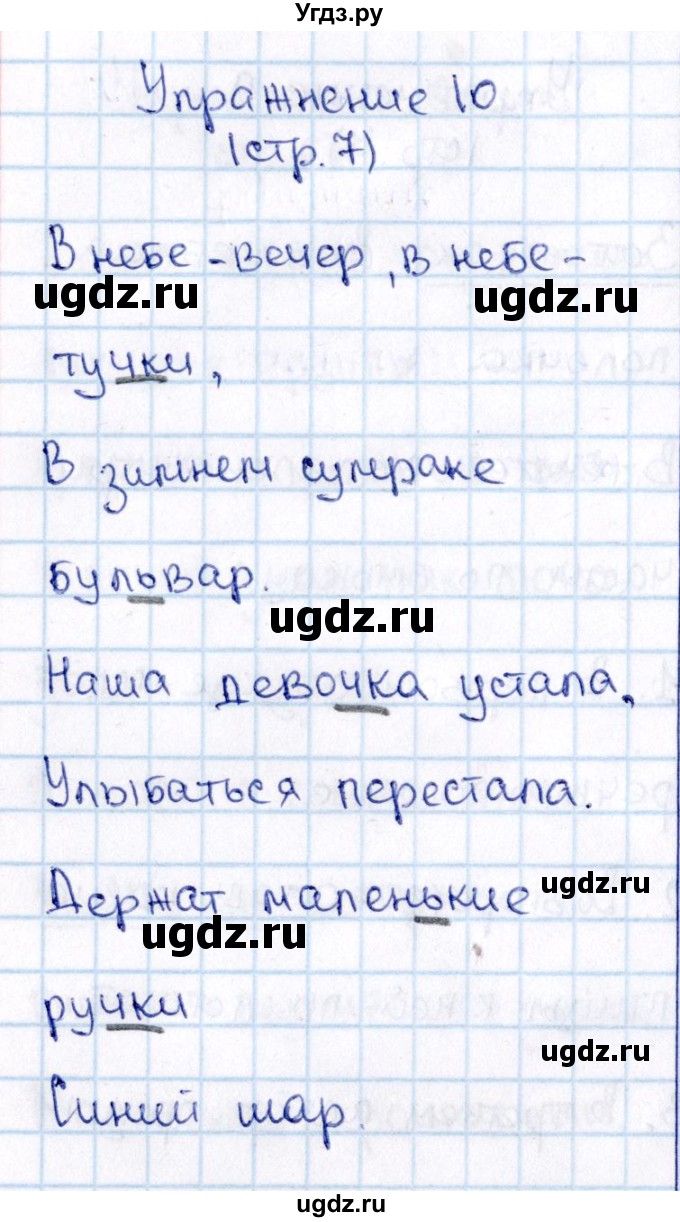 Угдз.ру
Упражнение 10
(стр. 7)
В небе - вечер, в небе -
ugdz.ru
ugdz.ru
тучки,
В зимнем сумраке
бульвар.
ugdz.ru
Наша девочка устала,
Улыбаться перестала.
ugdz.ru
Держат маленькие
ugdz.ru
ручки
ugdz.ru
Синий шар.
ugdz.ru